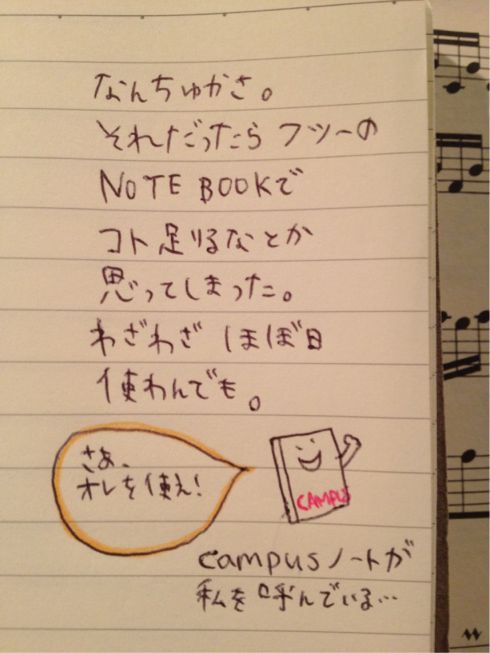 なんちゅかさ。
それだったら フツーの
NOTE BOOKで
コト足りるなとか
思ってしまった。
わざわざ ほぼ日
使わんでも。
さあ、
オレを使え!
CAMPUS
campusノートが
私を呼んでいる…